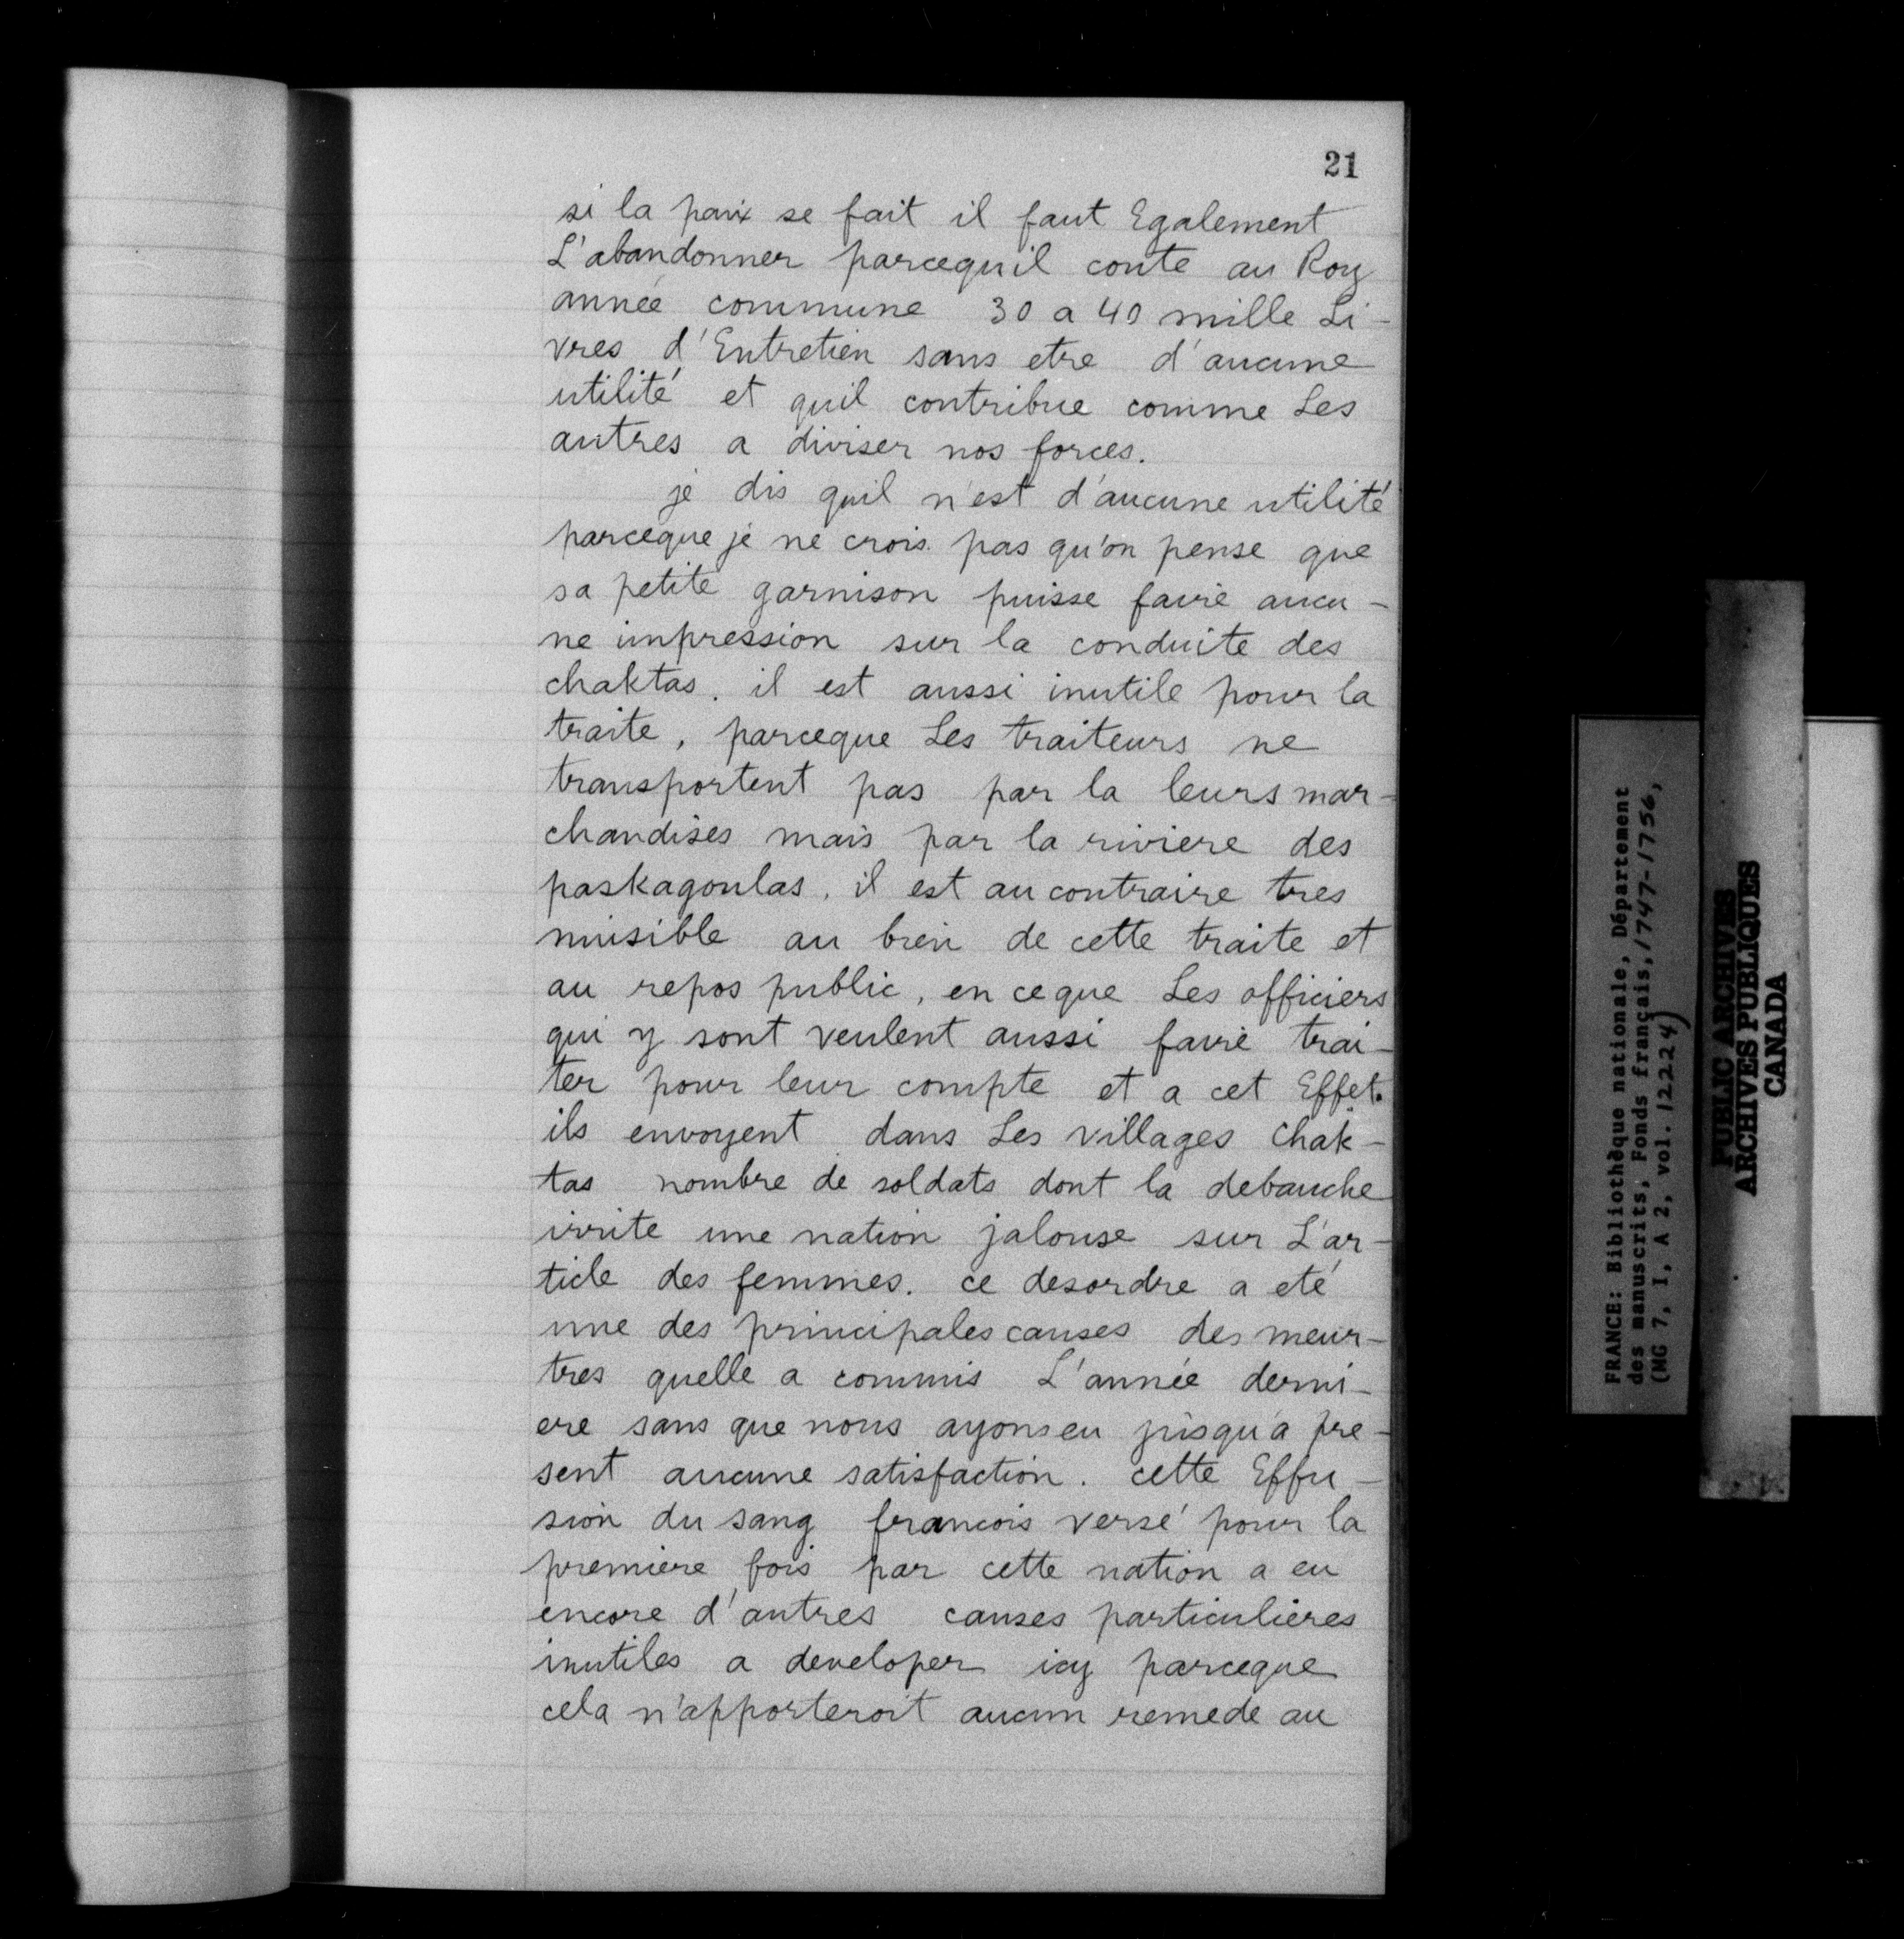 21
si la paix se fait il faut Egalement
L'abandonner parcequil coute au Roy
année commune 30 a 40 mille Li-
vres d'Entretien sans etre d'aucune
utilité et quil contribue comme Les
autres a diviser nos forces.
je dis quil n'est d'aucune utilité
parceque je ne crois pas qu'on pense que
sa petite garnison puisse faire aucu-
ne impression sur la conduite des
chaktas. il est aussi inutile pour la
traite, parceque Les traiteurs ne
transportent pas par la leurs mar-
chandises mais par la riviere des
paskagoulas. il est au contraire tres
nuisible au bien de cette traite et
au repos public, en ceque Les officiers
qui y sont veulent aussi faire trai-
ter pour leur compte et a cet Effet.
ils envoyent dans Les villages chak-
tas nombre de soldats dont la debauche
irrite une nation jalouse sur L'ar-
ticle des femmes. ce desordre a eté
une des principales causes des meur-
tres quelle a commis L'année derni-
ere sans que nous ayons eu jusqu'a pre-
sent aucune satisfaction. cette Effu-
sion du sang francois versé pour la
premiere fois par cette nation a eu
encore d'autres causes particulieres
inutiles a developer icy parceque
cela n'apporteroit aucun remede au
FRANCE: Bibliothèque nationale, Département
des manuscrits, Fonds français, 1747-1756,
(MG 7, I, A 2, vol. 12224)
PUBLIC ARCHIVES
ARCHIVES PUBLIQUES
CANADA